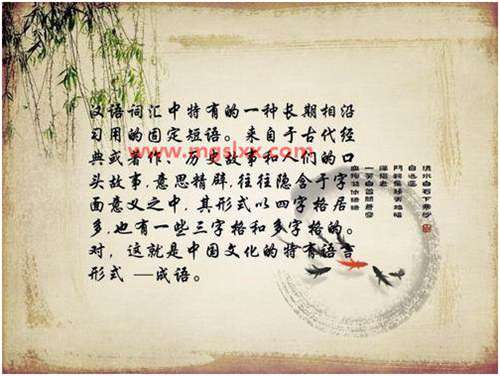 汉语词汇中特有的一种长期相沿
习用的固定短语。来自于古代经
典或著作、历史故事和人们的口
头故事,意思精辟,往往隐含于字
面意义之中,其形式以四字格居
多,也有一些三字格和多字格的。
对，这就是中国文化的特有语言
形式 —成语。
www.mgslxx.com